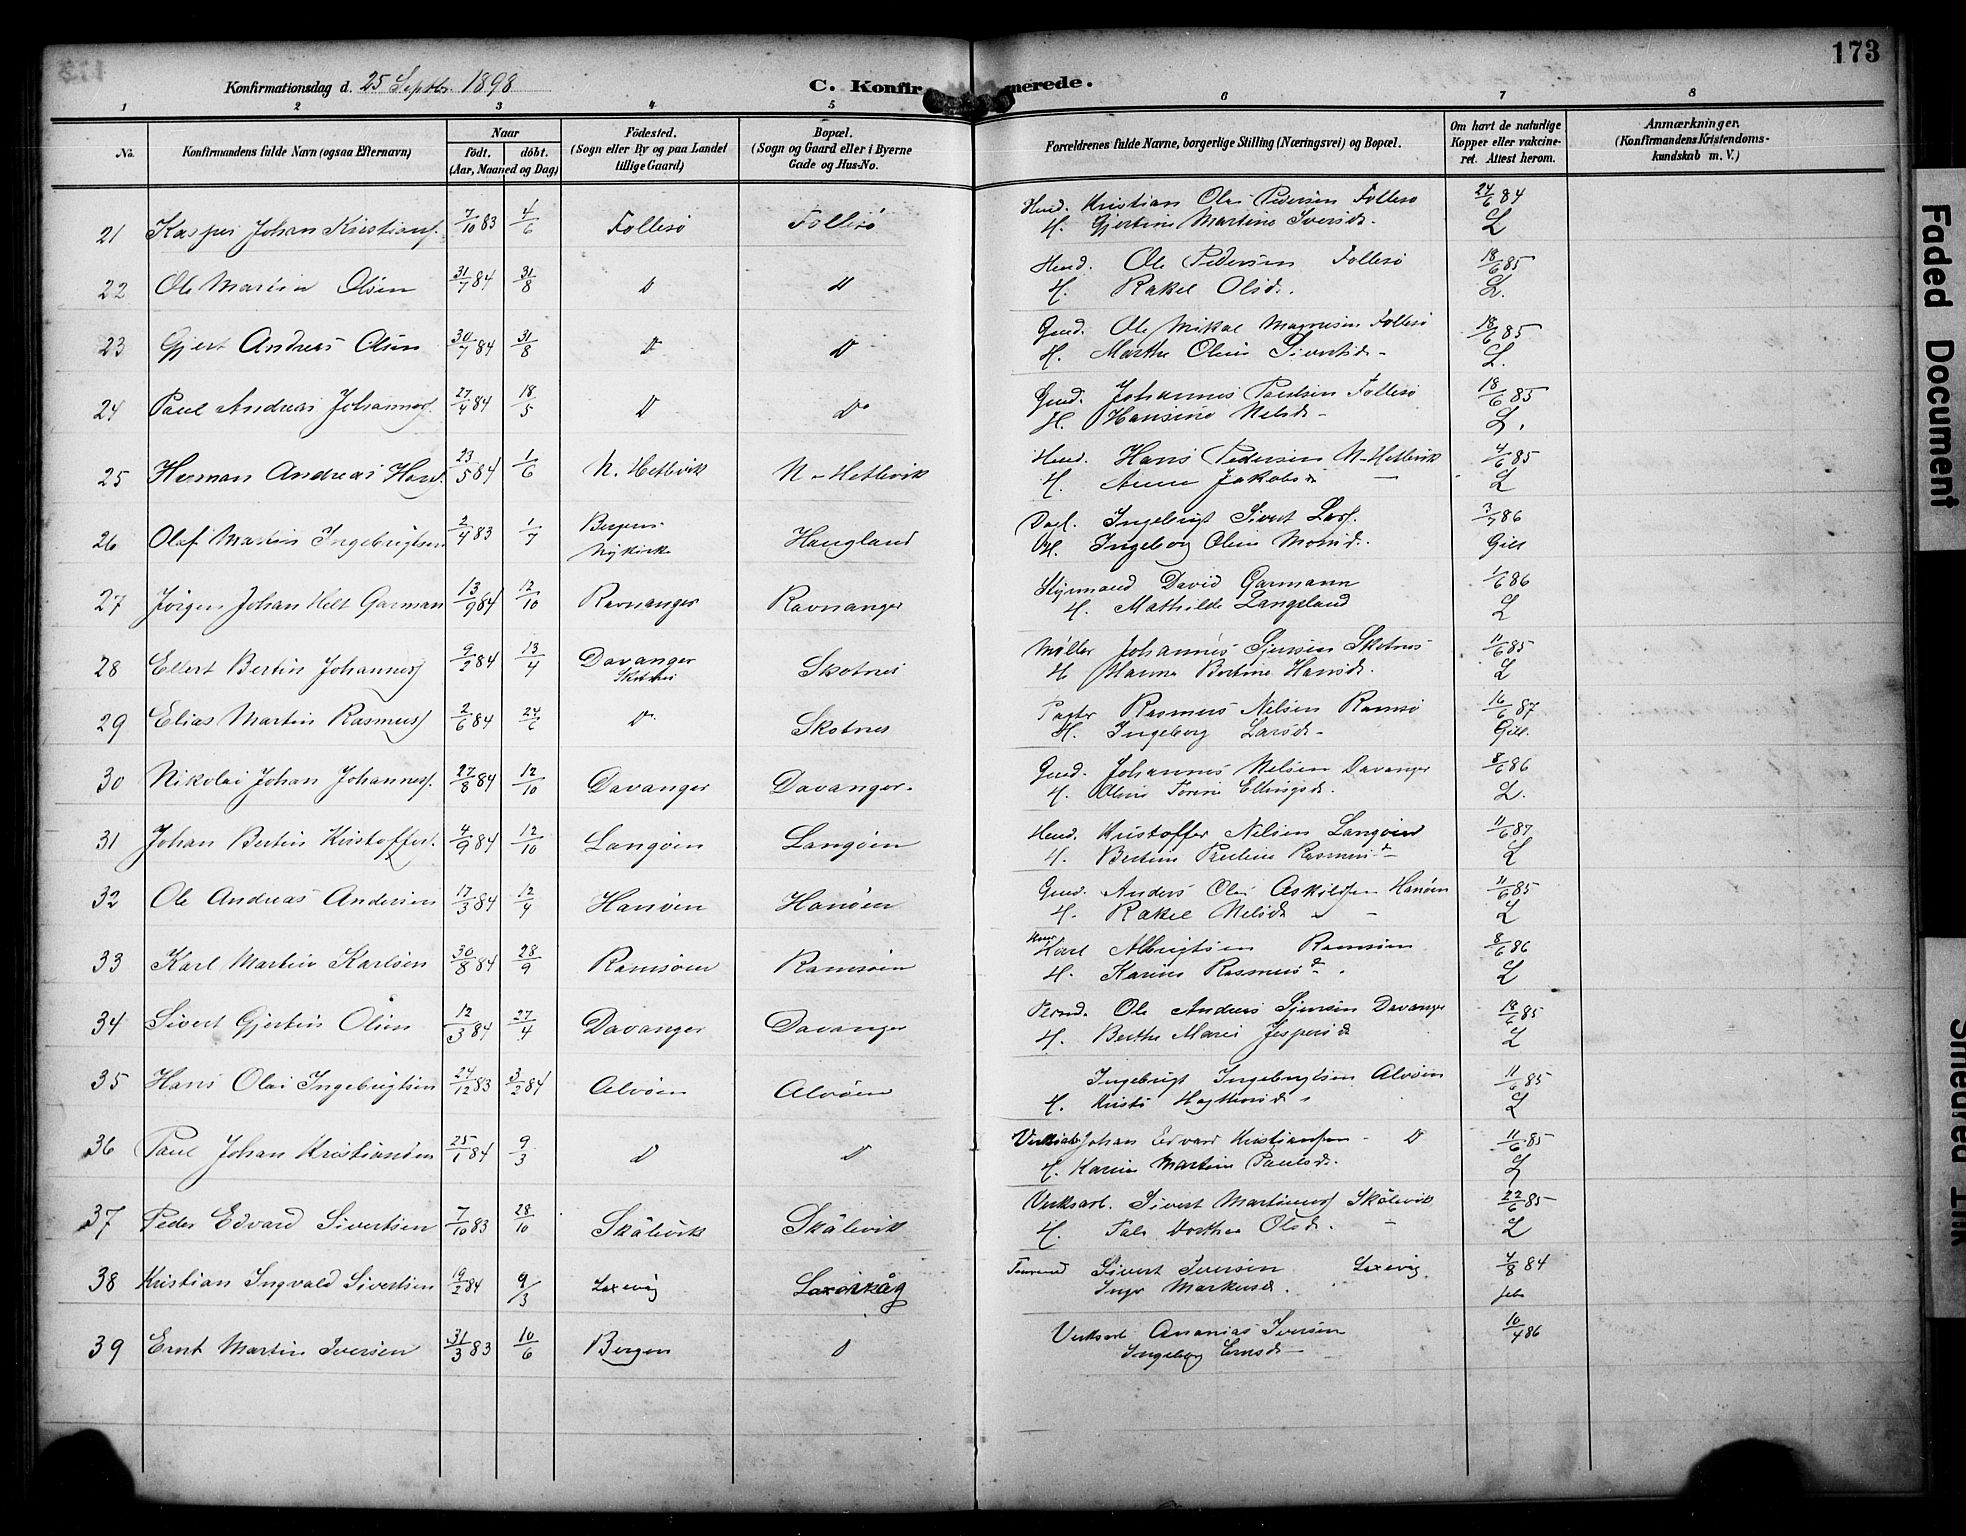 173
Konfirmationsdag d. 25 Septbr. 1898
C. Konfirmerede.
1 2 3 4 5 6 7 8
No.
Konfirmandens fulde Navn (ogsaa Efternavn)
Naar
födt.
döbt.
(Aar, Maaned og Dag)
Födested.
(Sogn eller By og paa Landet
tillige Gaard)
Bopæl.
(Sogn og Gaard eller i Byerne
Gade og Hus-No.
Forældrenes fulde Navne, borgerlige Stilling (Næringsvei) og Bopæl.
Om havt de naturlige
Kopper eller vakcine-
ret. Attest herom.
Anmærkninger.
(Konfirmandens Kristendoms-
kundskab m. V.)
21 Kasper Johan Kristians. 7/10 83 4/6 Follesö Follesö Huud. Kristian Olai Pedersen Follesö 24/6 84
H. Gjertine Martine Iversd. L
22 Ole Martin Olsen 31/7 84 31/8 D D Huud. Ole Pedersen Follesö 18/6 85
H. Rakel Olsd. L.
23 Gjert Andreas Olsen 30/7 84 31/8 D D Gmd. Ole Mikal Magnesen Follesö 18/6 85
H. Marthe Oline Sivertsd. L.
24 Paul Andreas Johanness. 27/4 84 18/5 D Do Gmd. Johannes Paulsen Follesö 18/6 85
H. Hansine Nelsd. L.
25 Herman Andreas Hans. 23/5 84 1/6 N. Hetlevik N-Hetlevik Huud. Hans Pedersen N-Hetlevik 4/6 85
H. Anna Jakobsd. L
26 Olaf Martin Ingebrigtsen 2/4 83 1/7 Bergens Nykirke Haugland Ingebrigt Sivert Lars. 3/7 86
Ingeborg Oline Monsd. Gill
27 Jörgen Johan Helt Garman 13/9 84 12/10 Ravnanger Ravnanger Styrmand David Garmann 1/6 86
H. Mathilde Langeland L
28 Ellert Bertin Johanness. 9/2 84 13/4 Davanger Skotnes Skotnes Møller Johannes Sjursen Skotnes 11/6 85
H. Hanna Bertine Hansd. L
29 Elias Martin Rasmuss. 2/6 84 24/6 Do Skotnes Pagter Rasmus Nelsen Ramsö 16/6 87
H. Ingeborg Larsd. Gill.
30 Nikolai Johan Johanness. 27/8 84 12/10 Davanger Davanger. Gmd. Johannes Nelsen Davanger 8/6 86
H. Oline Torine Ellingsd. L.
31 Johan Bertin Kristoffers. 4/9 84 12/10 Langöen Langöen Huud. Kristoffer Nelsen Langöen 11/6 87
H. Bertine Pauline Rasmusd. L
32 Ole Andreas Andersen 17/3 84 12/4 Hanöen Hanöen Gmd. Anders Olai Askildsen Hanöen 11/6 85
H. Rakel Nelsd. L
33 Karl Martin Karlsen 30/8 84 28/9 Ramsöen Ramsöen Karl Albrigtsen Ramsöen 8/6 86
H. Karine Rasmusd. L
34 Sivert Gjertin Olsen 12/3 84 27/4 Davanger Davanger Ole Andreas Sjursen Davanger 18/6 85
H. Berthe Marie Jespersd. L
35 Hans Olai Ingebrigtsen 24/12 83 3/2 84 Alvöen Alvöen Ingebrigt Ingebrigtsen Alvöen 11/6 85
H. L
36 Paul Johan Kristiansen 25/1 84 9/3 D D Johan Edvard Kristiansen - D 11/6 85
H. Karine Martine Paulsd. L
37 Peder Edvard Sivertsen 7/10 83 28/10 Skålevik Skålevik Verksarb. Sivert Martinus. Skålevik 22/6 85
H. Dorthea Olsd. L
38 Kristian Ingvald Sivertsen 19/2 84 9/3 Laxevåg Laxevåg Sivert Iversen Laxevåg 4/8 84
Inger Markusd.
39 Ernt Martin Iversen 31/3 83 10/6 Bergen D Verksarb. Ananias Iversen 10/4 86
Ingeborg Ernsd.
Faded Document
Smeared Ink